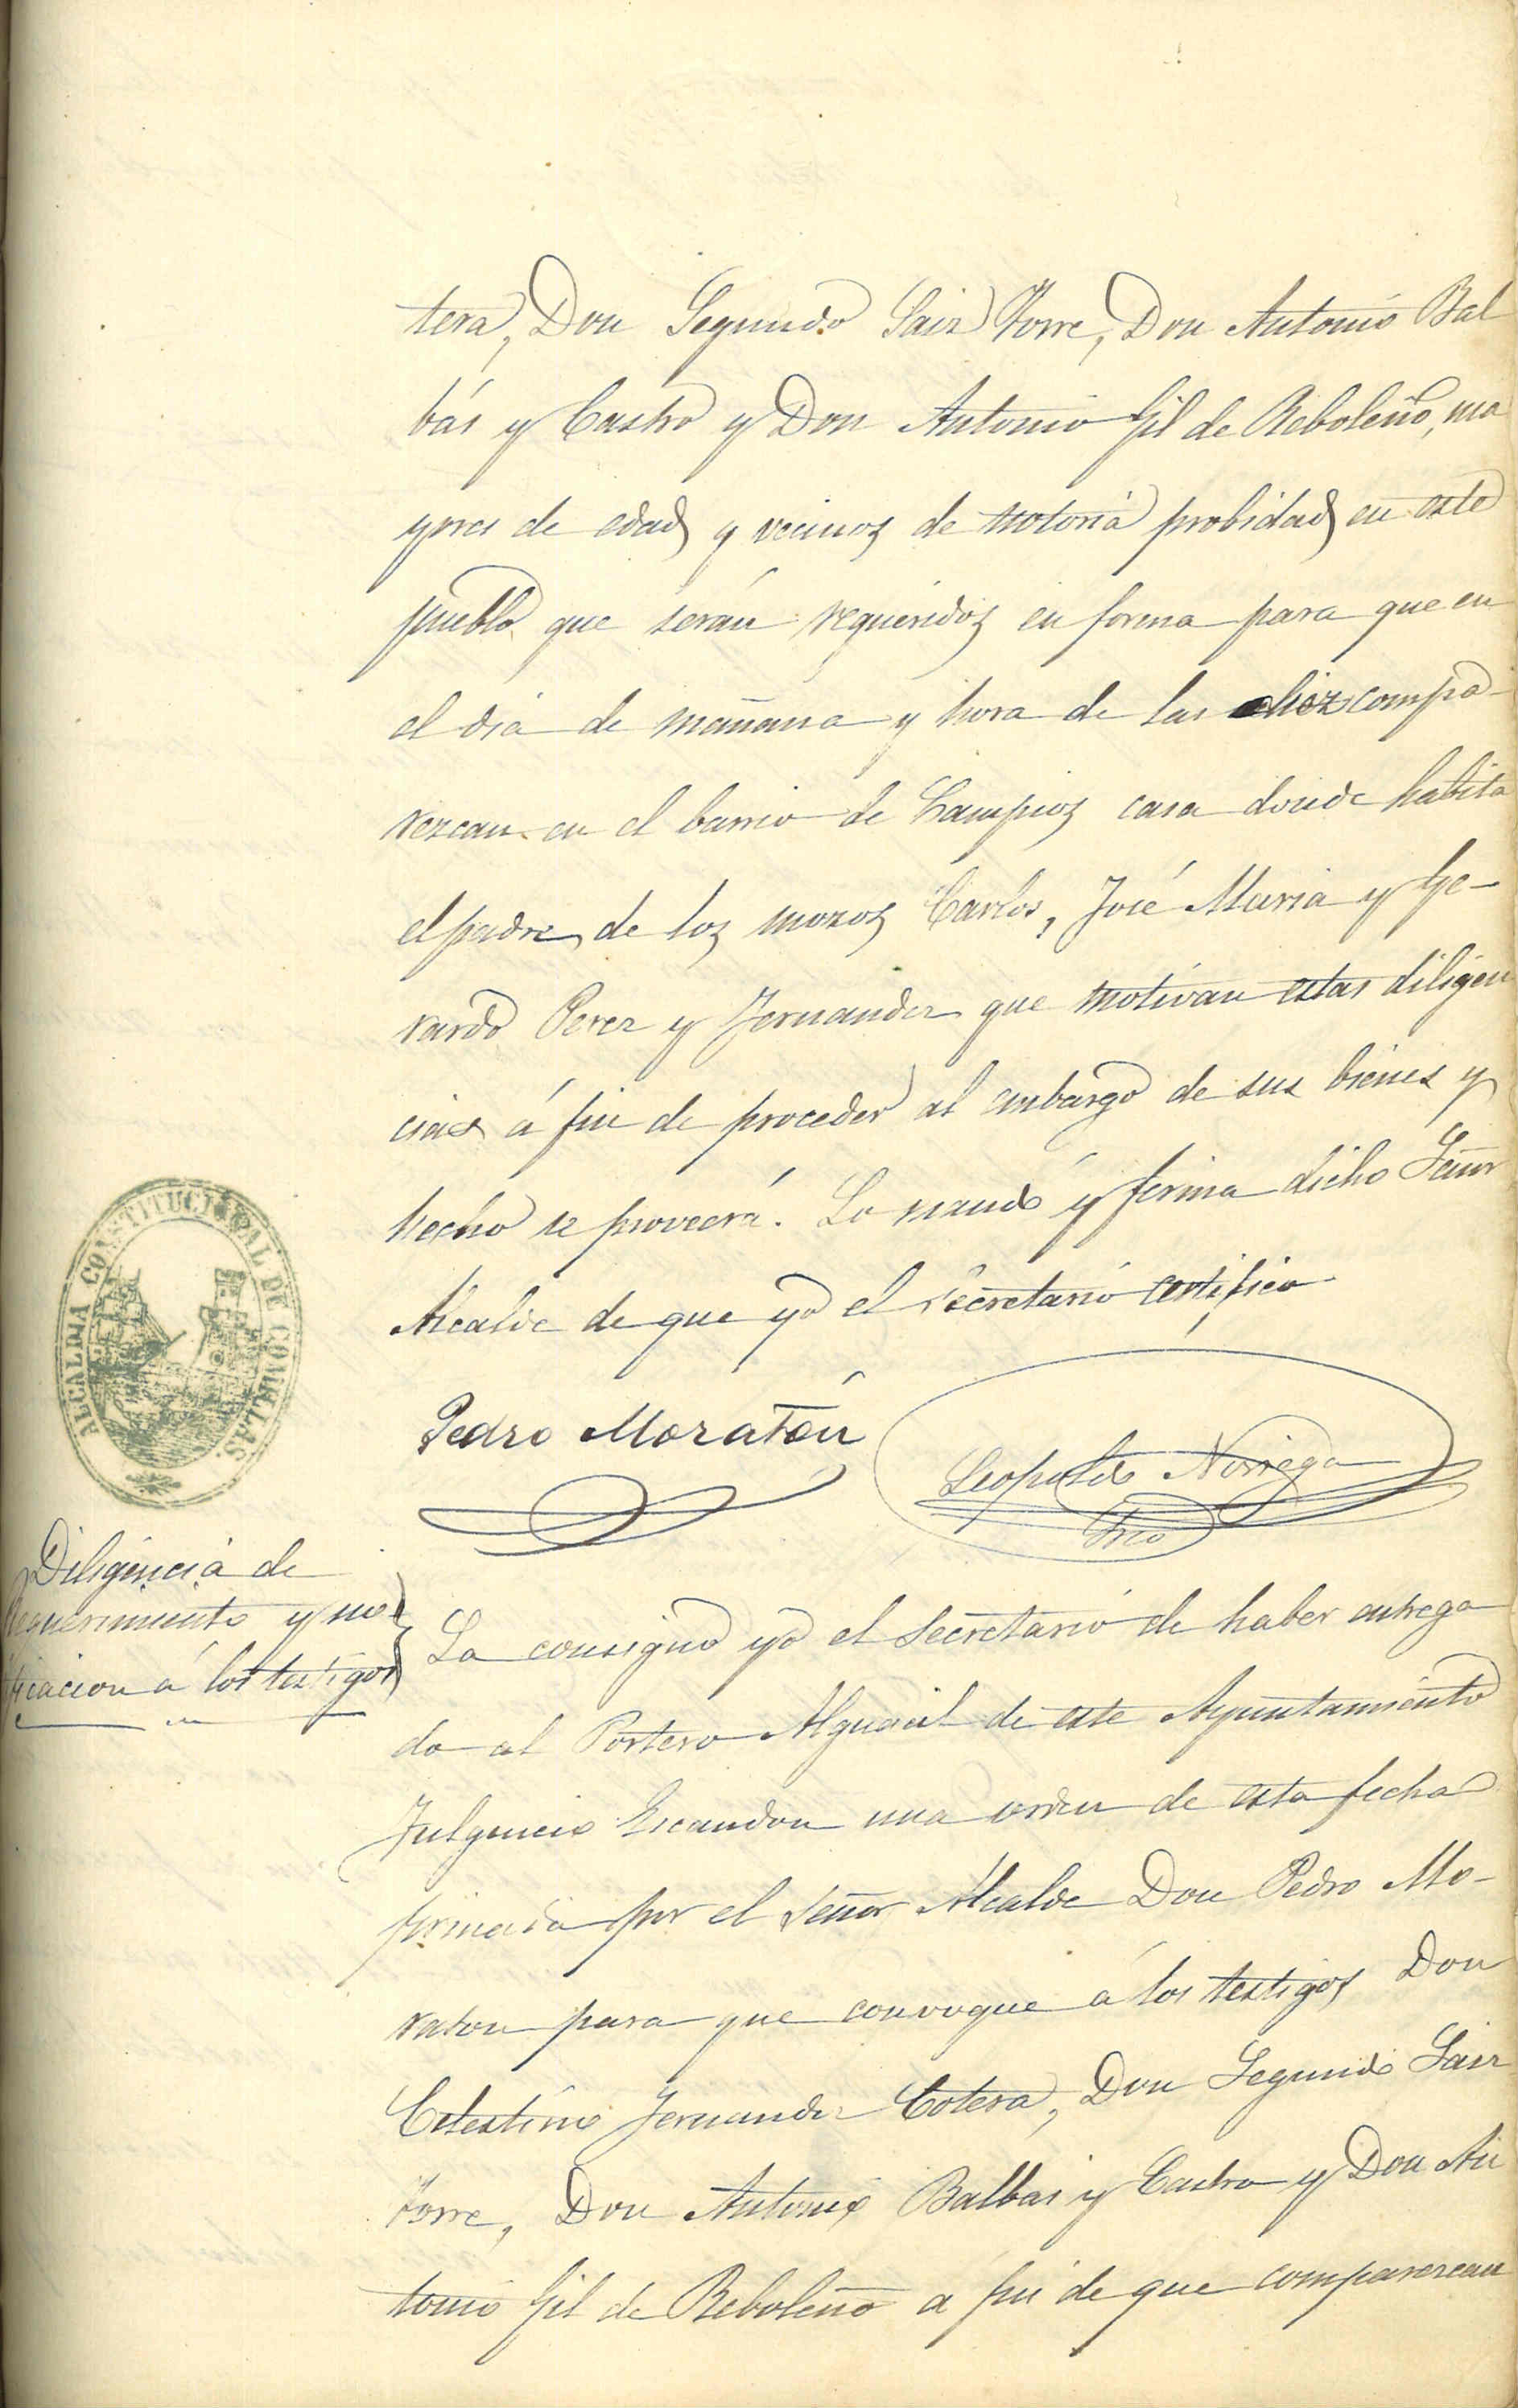 tera, Don Segundo Sainz Torre, Don Antonio Bal
bás y Castro y Don Antonio Gil de Reboleño, ma
yores de edad y vecinos de notoria probidad en este
pueblo que serán requeridos en forma para que en
el dia de mañana y hora de las diez compa-
rezcan en el barrio de Campios casa donde habita
el padre de los mozos Carlos, José Maria y Ge-
rardo Perez y Fernandez que motivan estas diligen
cias á fin de proceder al embargo de sus bienes y
hecho se proveerá. Lo mandó y firma dicho Señor
Alcalde de que yo el Secretario certifico
Pedro Moratón
Leopoldo Noriega
Srio
ALCALDIA CONSTITUCIONAL DE COMILLAS.
Diligencia de
requerimiento y no
tificacion á los testigos
La consigno yo el Secretario de haber entrega
do al Portero Alguacil de este Ayuntamiento
Fulgencio Escandon una orden de esta fecha
firmada por el Señor Alcalde Don Pedro Mo-
raton para que convoque á los testigos Don
Celestino Fernandez Cotera, Don Segundo Sainz
Torre, Don Antonio Balbas y Castro y Don An
tonio Gil de Reboleño a fin de que comparezcan